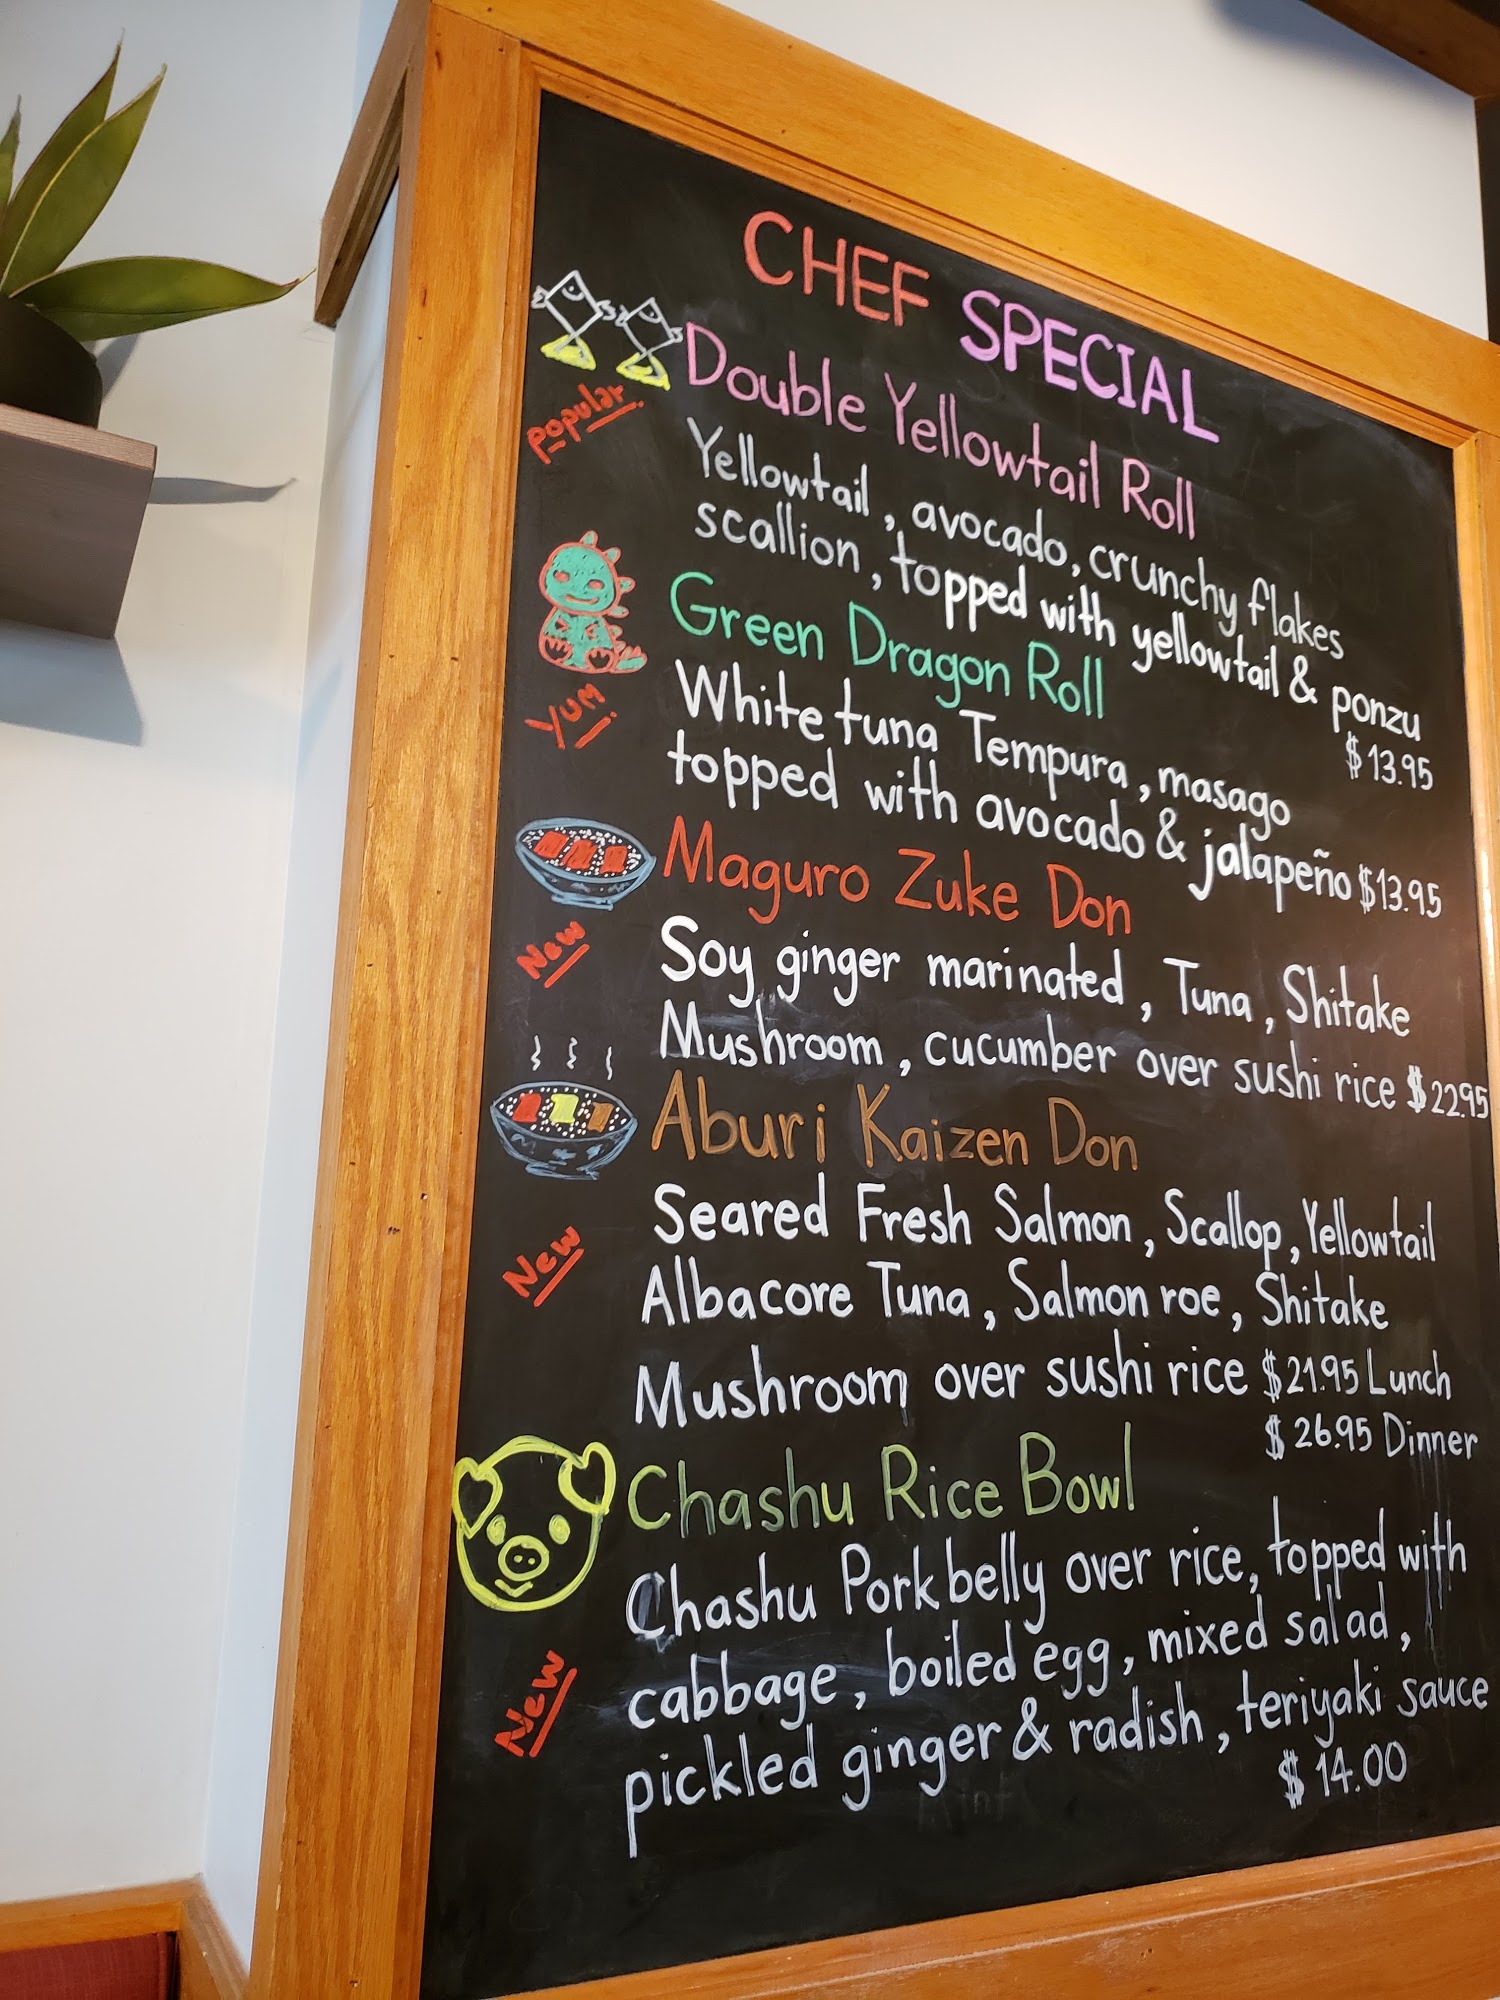 CHEF SPECIAL
Double Yellowtail Roll
popular
Yellowtail, avocado, crunchy flakes
scallion, topped with yellowtail & ponzu
$13.95
Green Dragon Roll
YUM
White tuna Tempura, masago
topped with avocado & jalapeño $13.95
Maguro Zuke Don
New
Soy ginger marinated, Tuna, Shitake
Mushroom, cucumber over sushi rice $22.95
Aburi Kaizen Don
New
Seared Fresh Salmon, Scallop, Yellowtail
Albacore Tuna, Salmon roe, Shitake
Mushroom over sushi rice $21.95 Lunch
$26.95 Dinner
Chashu Rice Bowl
New
Chashu Pork belly over rice, topped with
cabbage, boiled egg, mixed salad,
pickled ginger & radish, teriyaki sauce
$14.00